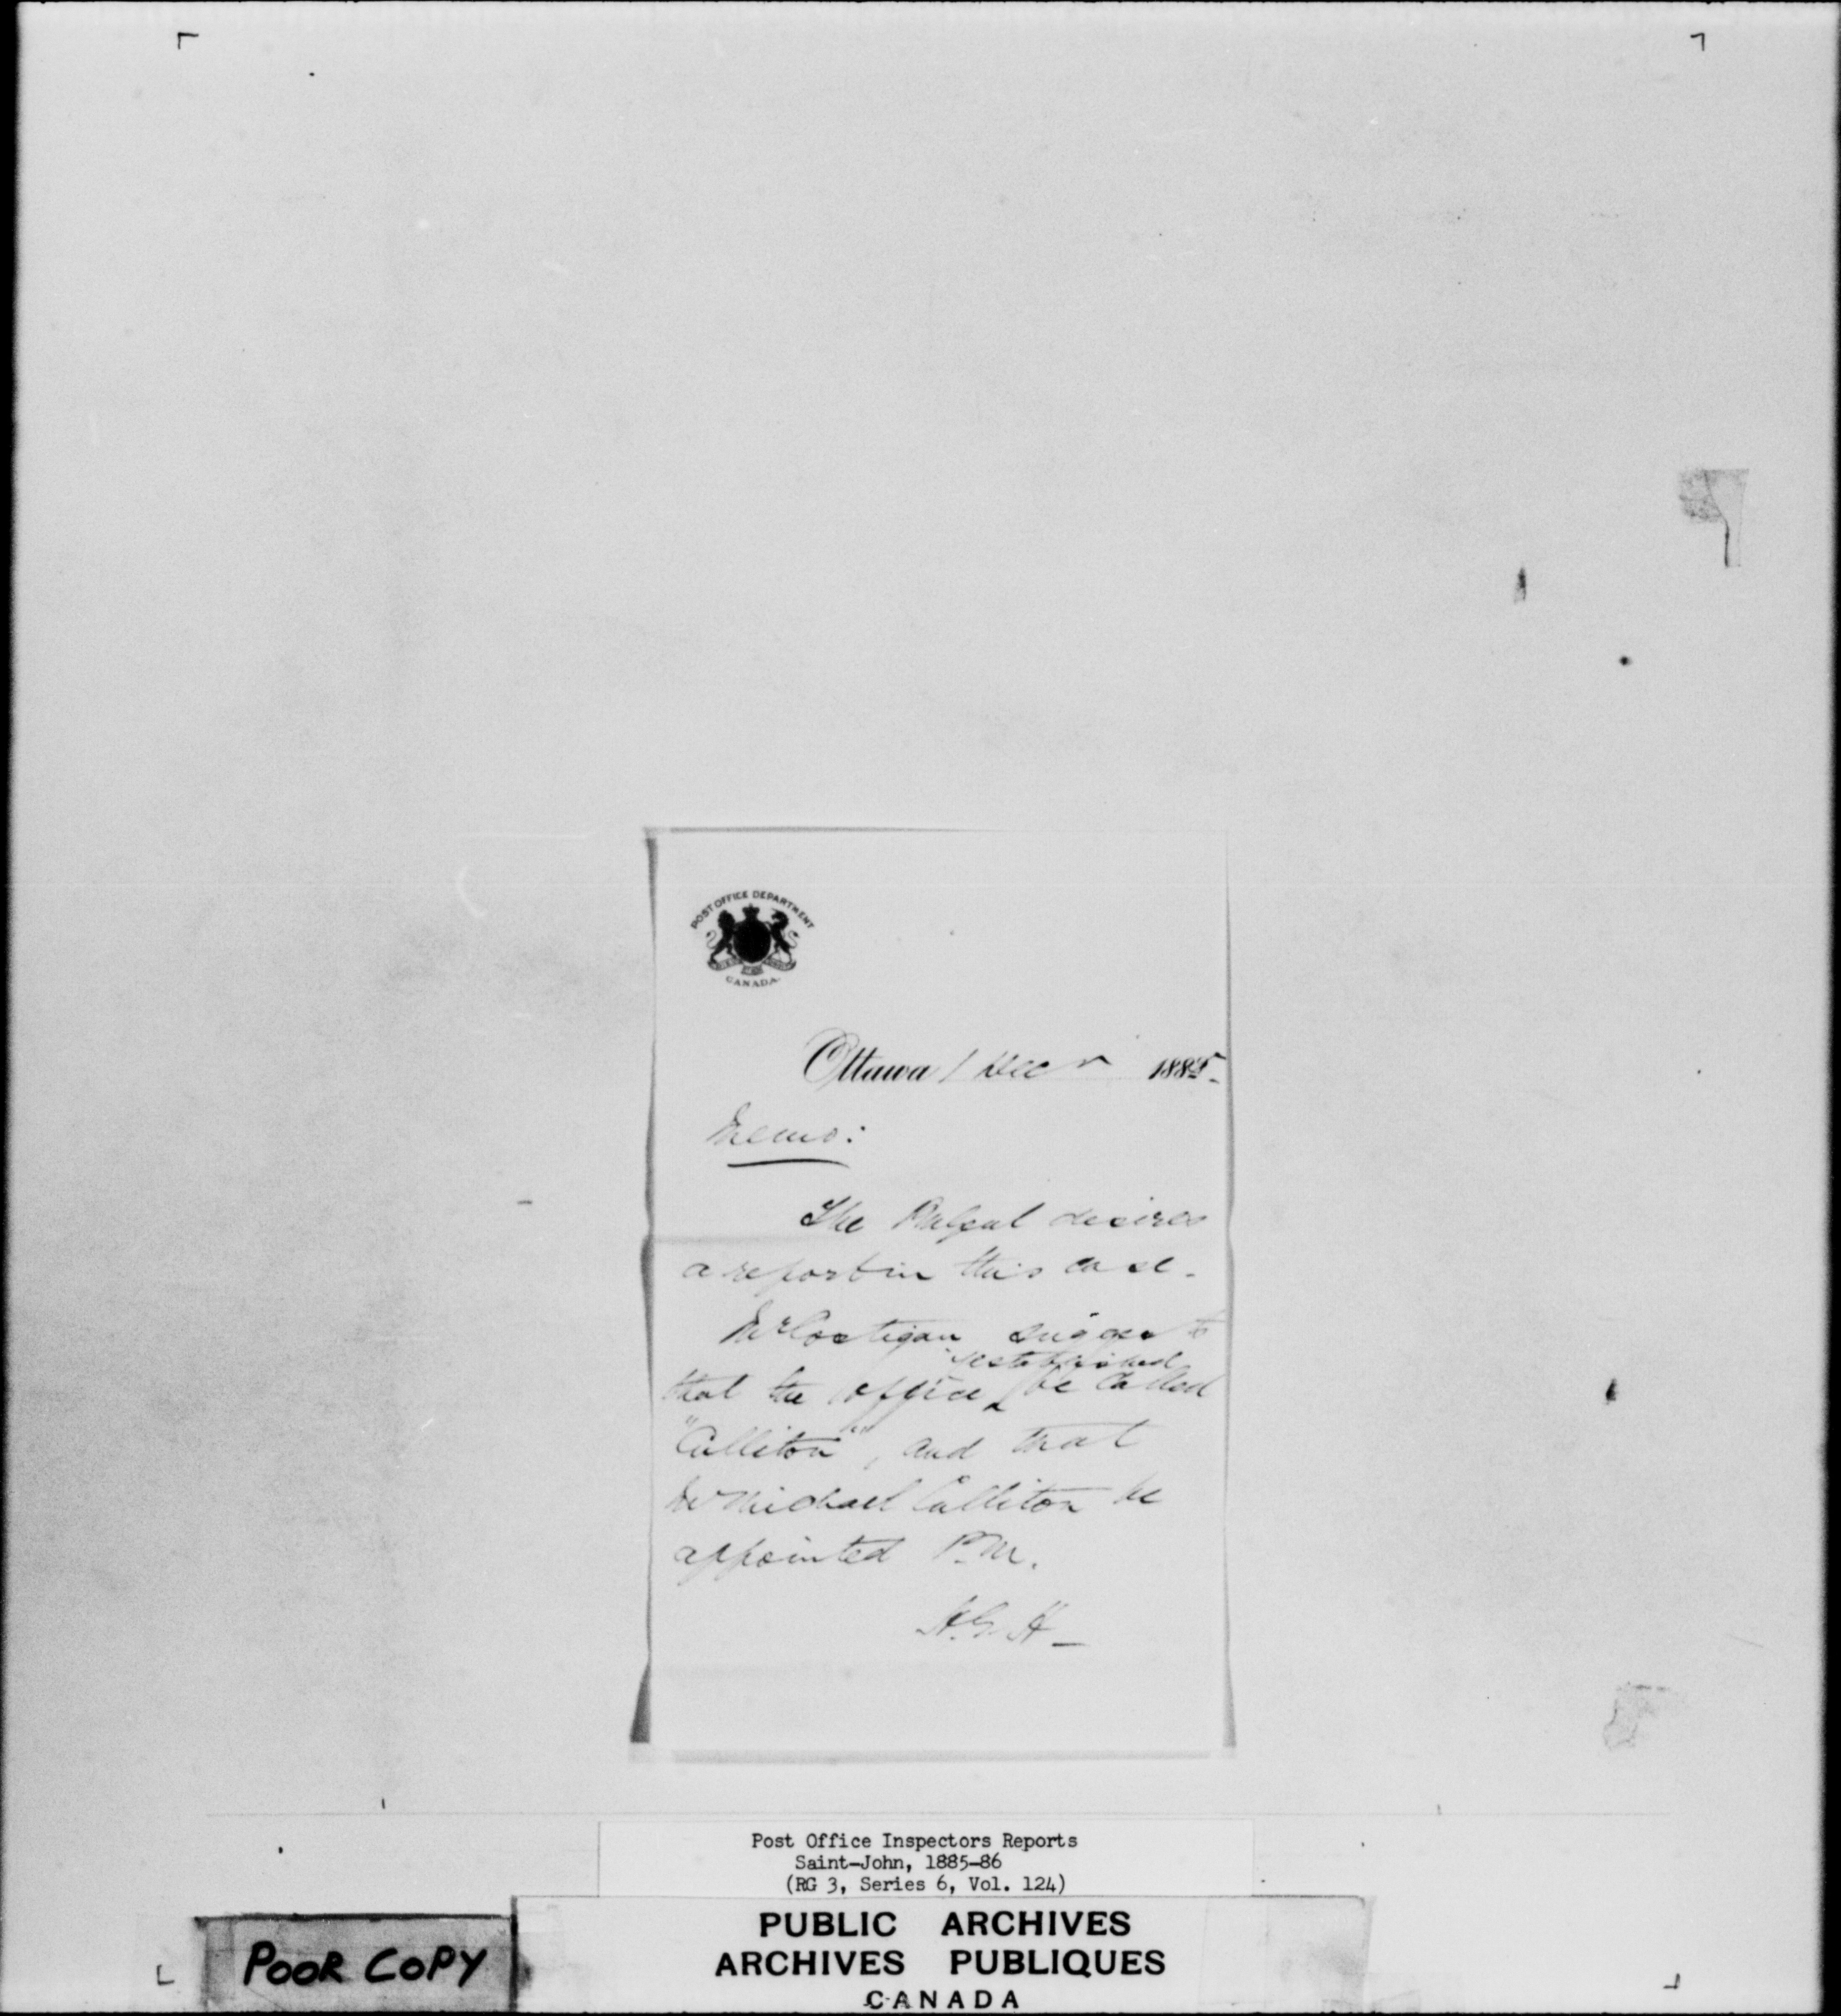 POST OFFICE DEPARTMENT
CANADA.
Ottawa 1 Decr 1885.
Memo:
The PMGenl desires
a report in this case.
Mr Costigan suggests
that the office ‸ if established be called
"Culliton", and that
Mr Michael Culliton be
appointed P.M.
H.G.H
Post Office Inspectors Reports
Saint-John, 1885-86
(RG 3, Series 6, Vol. 124)
POOR COPY
PUBLIC ARCHIVES
ARCHIVES PUBLIQUES
CANADA